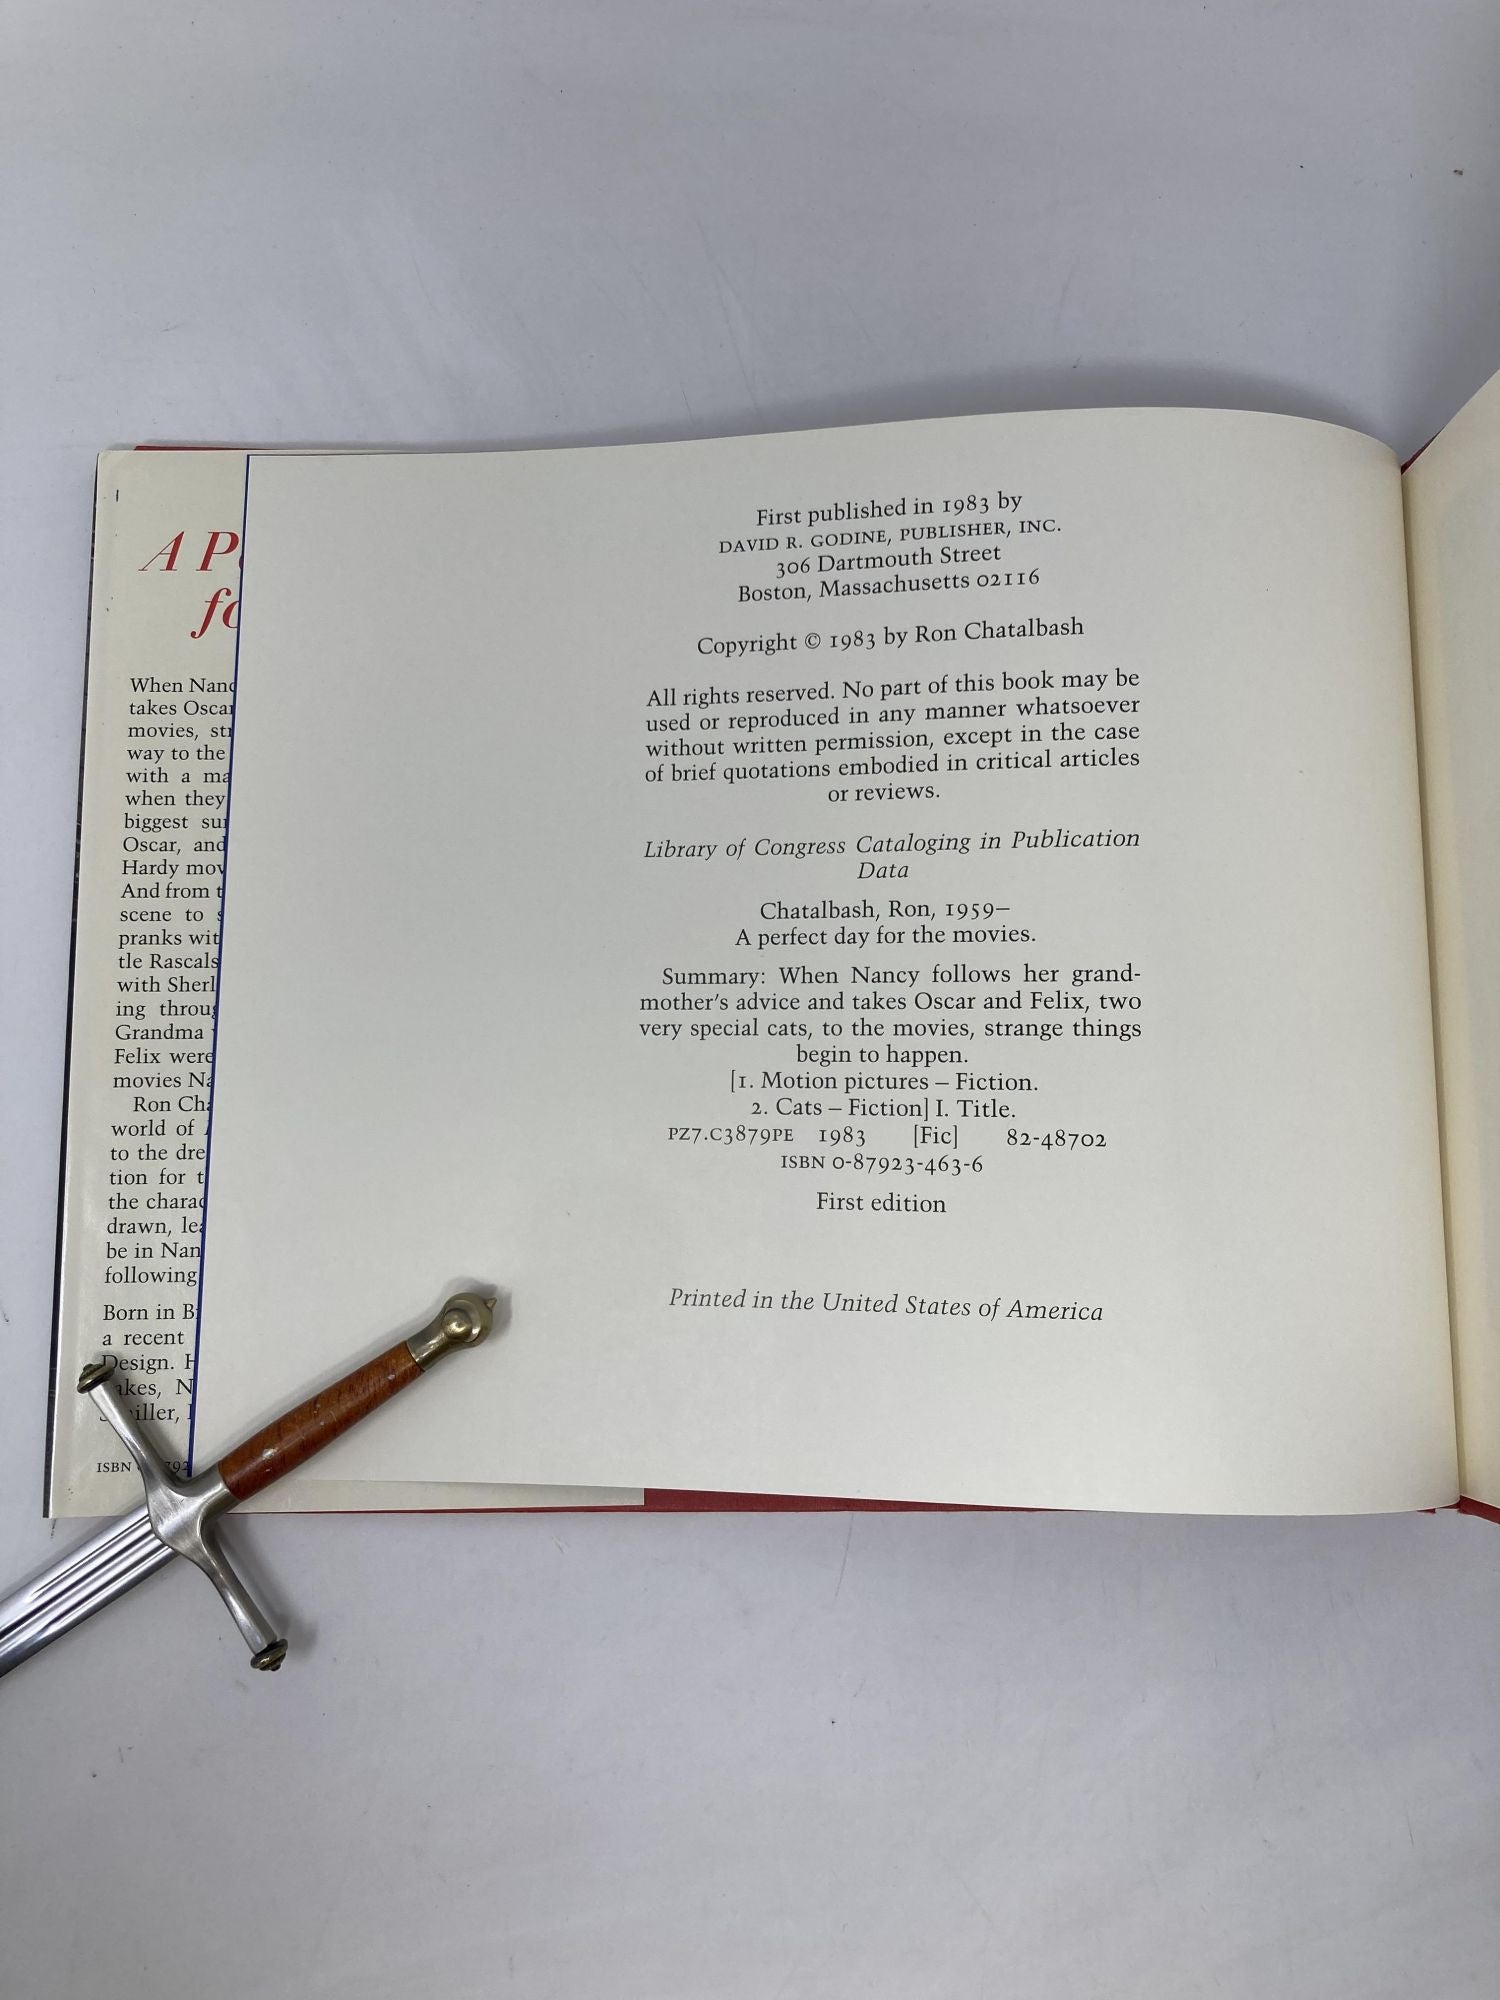 A P
fo
When Nanc
takes Oscar
movies, str
way to the
with a ma
when they
biggest sur
Oscar, and
Hardy mov
And from t
scene to s
pranks wit
tle Rascals
with Sherl
ing throug
Grandma
Felix were
movies Na
Ron Cha
world of
to the dre
tion for t
the charac
drawn, lea
be in Nan
following
Born in B
a recent
Design. H
akes, N
iller,
ISBN
First published in 1983 by
DAVID R. GODINE, PUBLISHER, INC.
306 Dartmouth Street
Boston, Massachusetts 02116
Copyright © 1983 by Ron Chatalbash
All rights reserved. No part of this book may be
used or reproduced in any manner whatsoever
without written permission, except in the case
of brief quotations embodied in critical articles
or reviews.
Library of Congress Cataloging in Publication
Data
Chatalbash, Ron, 1959–
A perfect day for the movies.
Summary: When Nancy follows her grand-
mother's advice and takes Oscar and Felix, two
very special cats, to the movies, strange things
begin to happen.
[1. Motion pictures – Fiction.
2. Cats – Fiction] I. Title.
PZ7.C3879PE 1983 [Fic] 82-48702
ISBN 0-87923-463-6
First edition
Printed in the United States of America